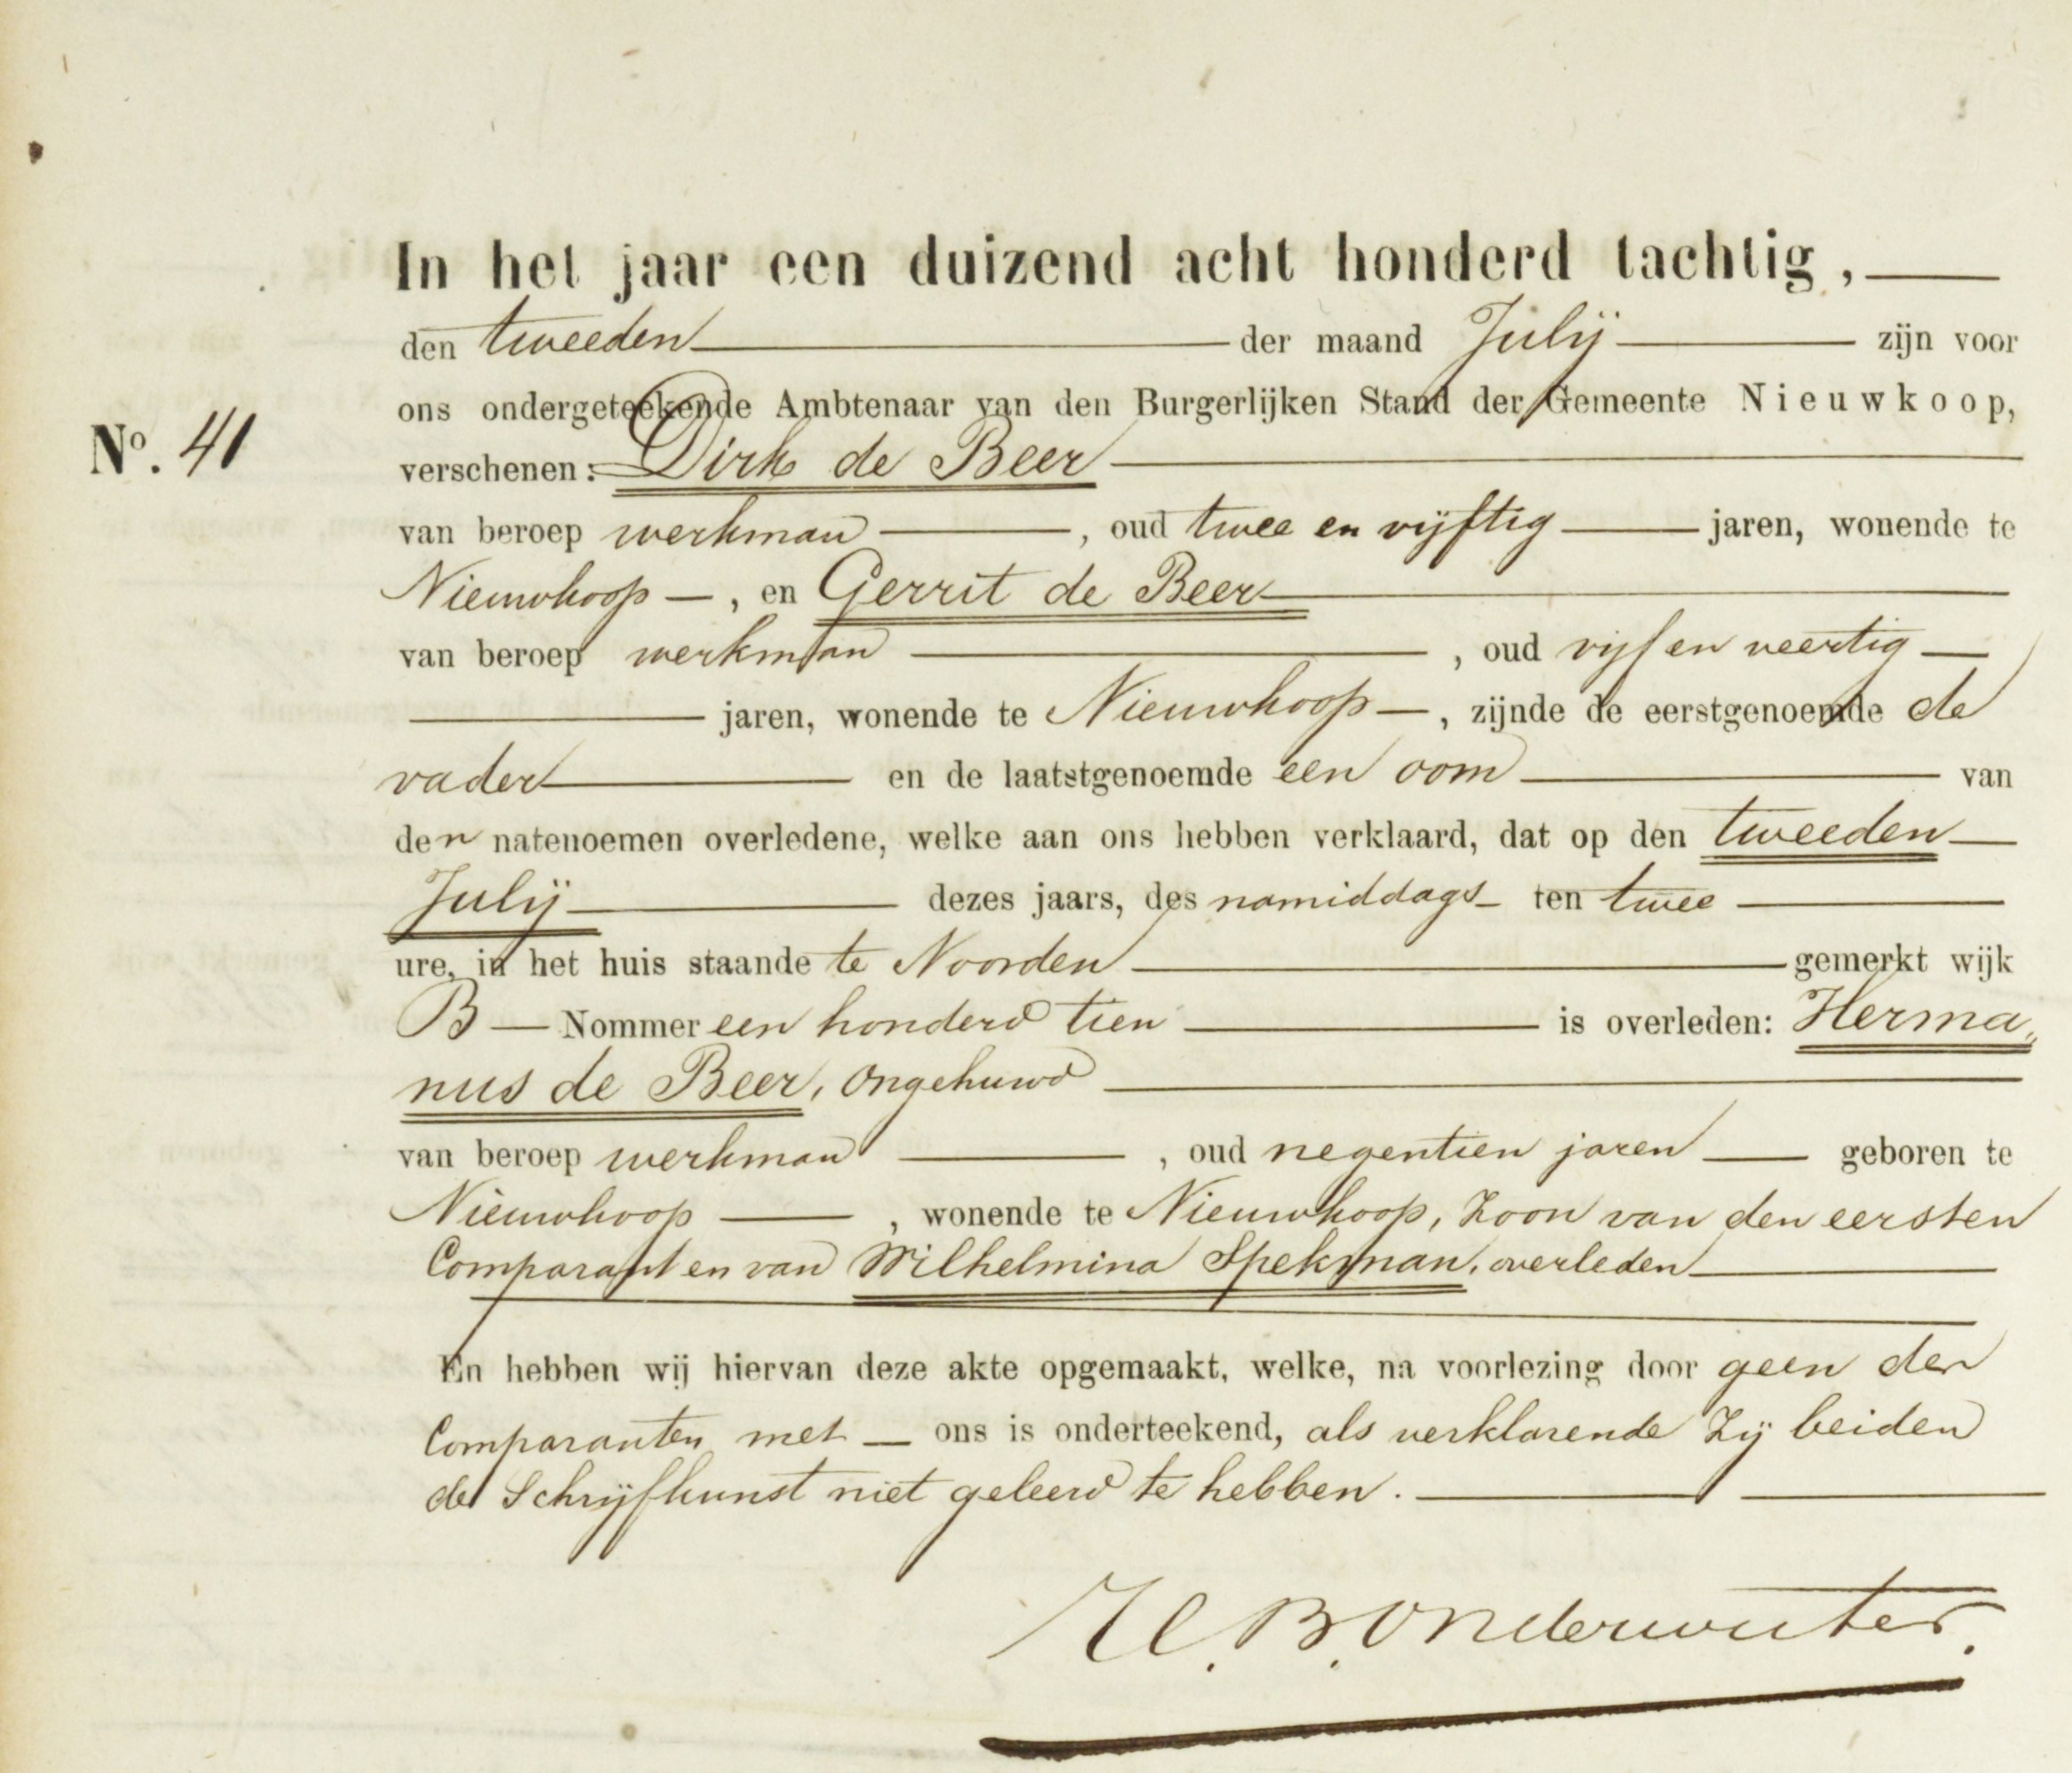 In het jaar een duizend acht honderd tachtig,
den tweeden der maand Julij zijn voor
ons ondergeteekende Ambtenaar van den Burgerlijken Stand der Gemeente Nieuwkoop,
No. 41
verschenen: Dirk de Beer
van beroep werkman, oud twee en vijftig jaren, wonende te
Nieuwkoop, en Gerrit de Beer
van beroep werkman, oud vijf en veertig
jaren, wonende te Nieuwkoop, zijnde de eerstgenoemde de
vader en de laatstgenoemde een oom van
den natenoemen overledene, welke aan ons hebben verklaard, dat op den tweeden
Julij dezes jaars, des namiddags ten twee
ure, in het huis staande te Noorden gemerkt wijk
B Nommer een honderd tien is overleden: Herma„
nus de Beer, ongehuwd
van beroep werkman, oud negentien jaren geboren te
Nieuwkoop, wonende te Nieuwkoop, Zoon van den eersten
Comparant en van Wilhelmina Spekman, overleden
En hebben wij hiervan deze akte opgemaakt, welke, na voorlezing door geen der
Comparanten met ons is onderteekend, als verklarende Zij beiden
de Schrijfkunst niet geleerd te hebben.